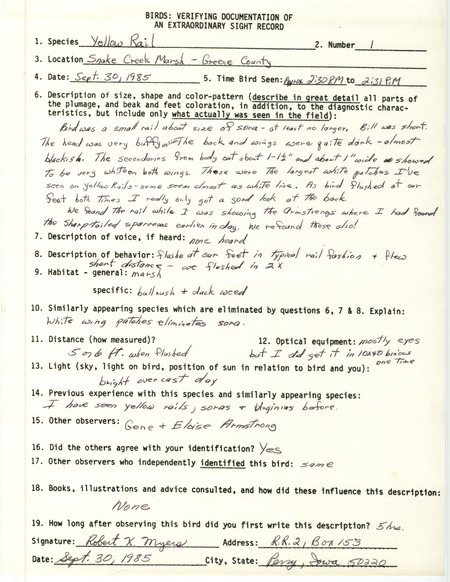 BIRDS: VERIFYING DOCUMENTATION OF
AN EXTRAORDINARY SIGHT RECORD
1. Species Yellow Rail 2. Number 1
3. Location Snake Creek Marsh - Greene County
4. Date: Sept. 30, 1985 5. Time Bird Seen: Approx 2:30 PM to 2:31 PM
6. Description of size, shape and color-pattern (describe in great detail all parts of
the plumage, and beak and feet coloration, in addition, to the diagnostic charac-
teristics, but include only what actually was seen in the field):
Bird was a small rail about size of sora - at least no larger. Bill was short.
The head was very buffy. The back and wings were quite dark - almost
blackish. The secondaries from body out about 1-1½" and about 1" wide showed
to be very white on both wings. These were the largest white patches I've
seen on yellow Rails - some seem almost as white line. As bird flushed at our
feet both times I really only got a good look at the back
We found the rail while I was showing the Armstrongs where I had found
the Sharp-tailed sparrows earlier in day. We refound these also!
7. Description of voice, if heard: none heard
8. Description of behavior: flushed at our feet in typical rail fashion + flew
short distance - we flushed in 2X
9. Habitat - general: marsh
specific: bullrush + duck weed
10. Similarly appearing species which are eliminated by questions 6, 7 & 8. Explain:
White wing patches eliminates sora.
11. Distance (how measured)? 12. Optical equipment: mostly eyes
5 or 6 ft. when flushed but I did get it in 10x40 binocs
one time
13. Light (sky, light on bird, position of sun in relation to bird and you):
bright overcast day
14. Previous experience with this species and similarly appearing species:
I have seen yellow rails, soras + Virginias before.
15. Other observers: Gene + Eloise Armstrong
16. Did the others agree with your identification? Yes
17. Other observers who independently identified this bird: same
18. Books, illustrations and advice consulted, and how did these influence this description:
None
19. How long after observing this bird did you first write this description? 5 hrs.
Signature: Robert K. Myers Address: R.R. 2, Box 153
Date: Sept. 30, 1985 City, State: Perry, Iowa 50220